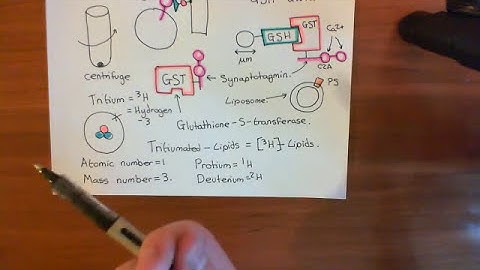 GSH
GST
Ca2+
GSH
μm
C2A
centrifuge
GST
Synaptotagmin.
PS
Liposome.
Tritium = ³H
= Hydrogen
-3
Glutathione-S-transferase.
Tritiumated-Lipids = [³H]-Lipids.
Atomic number = 1
Protium = ¹H
Mass number = 3.
Deuterium = ²H